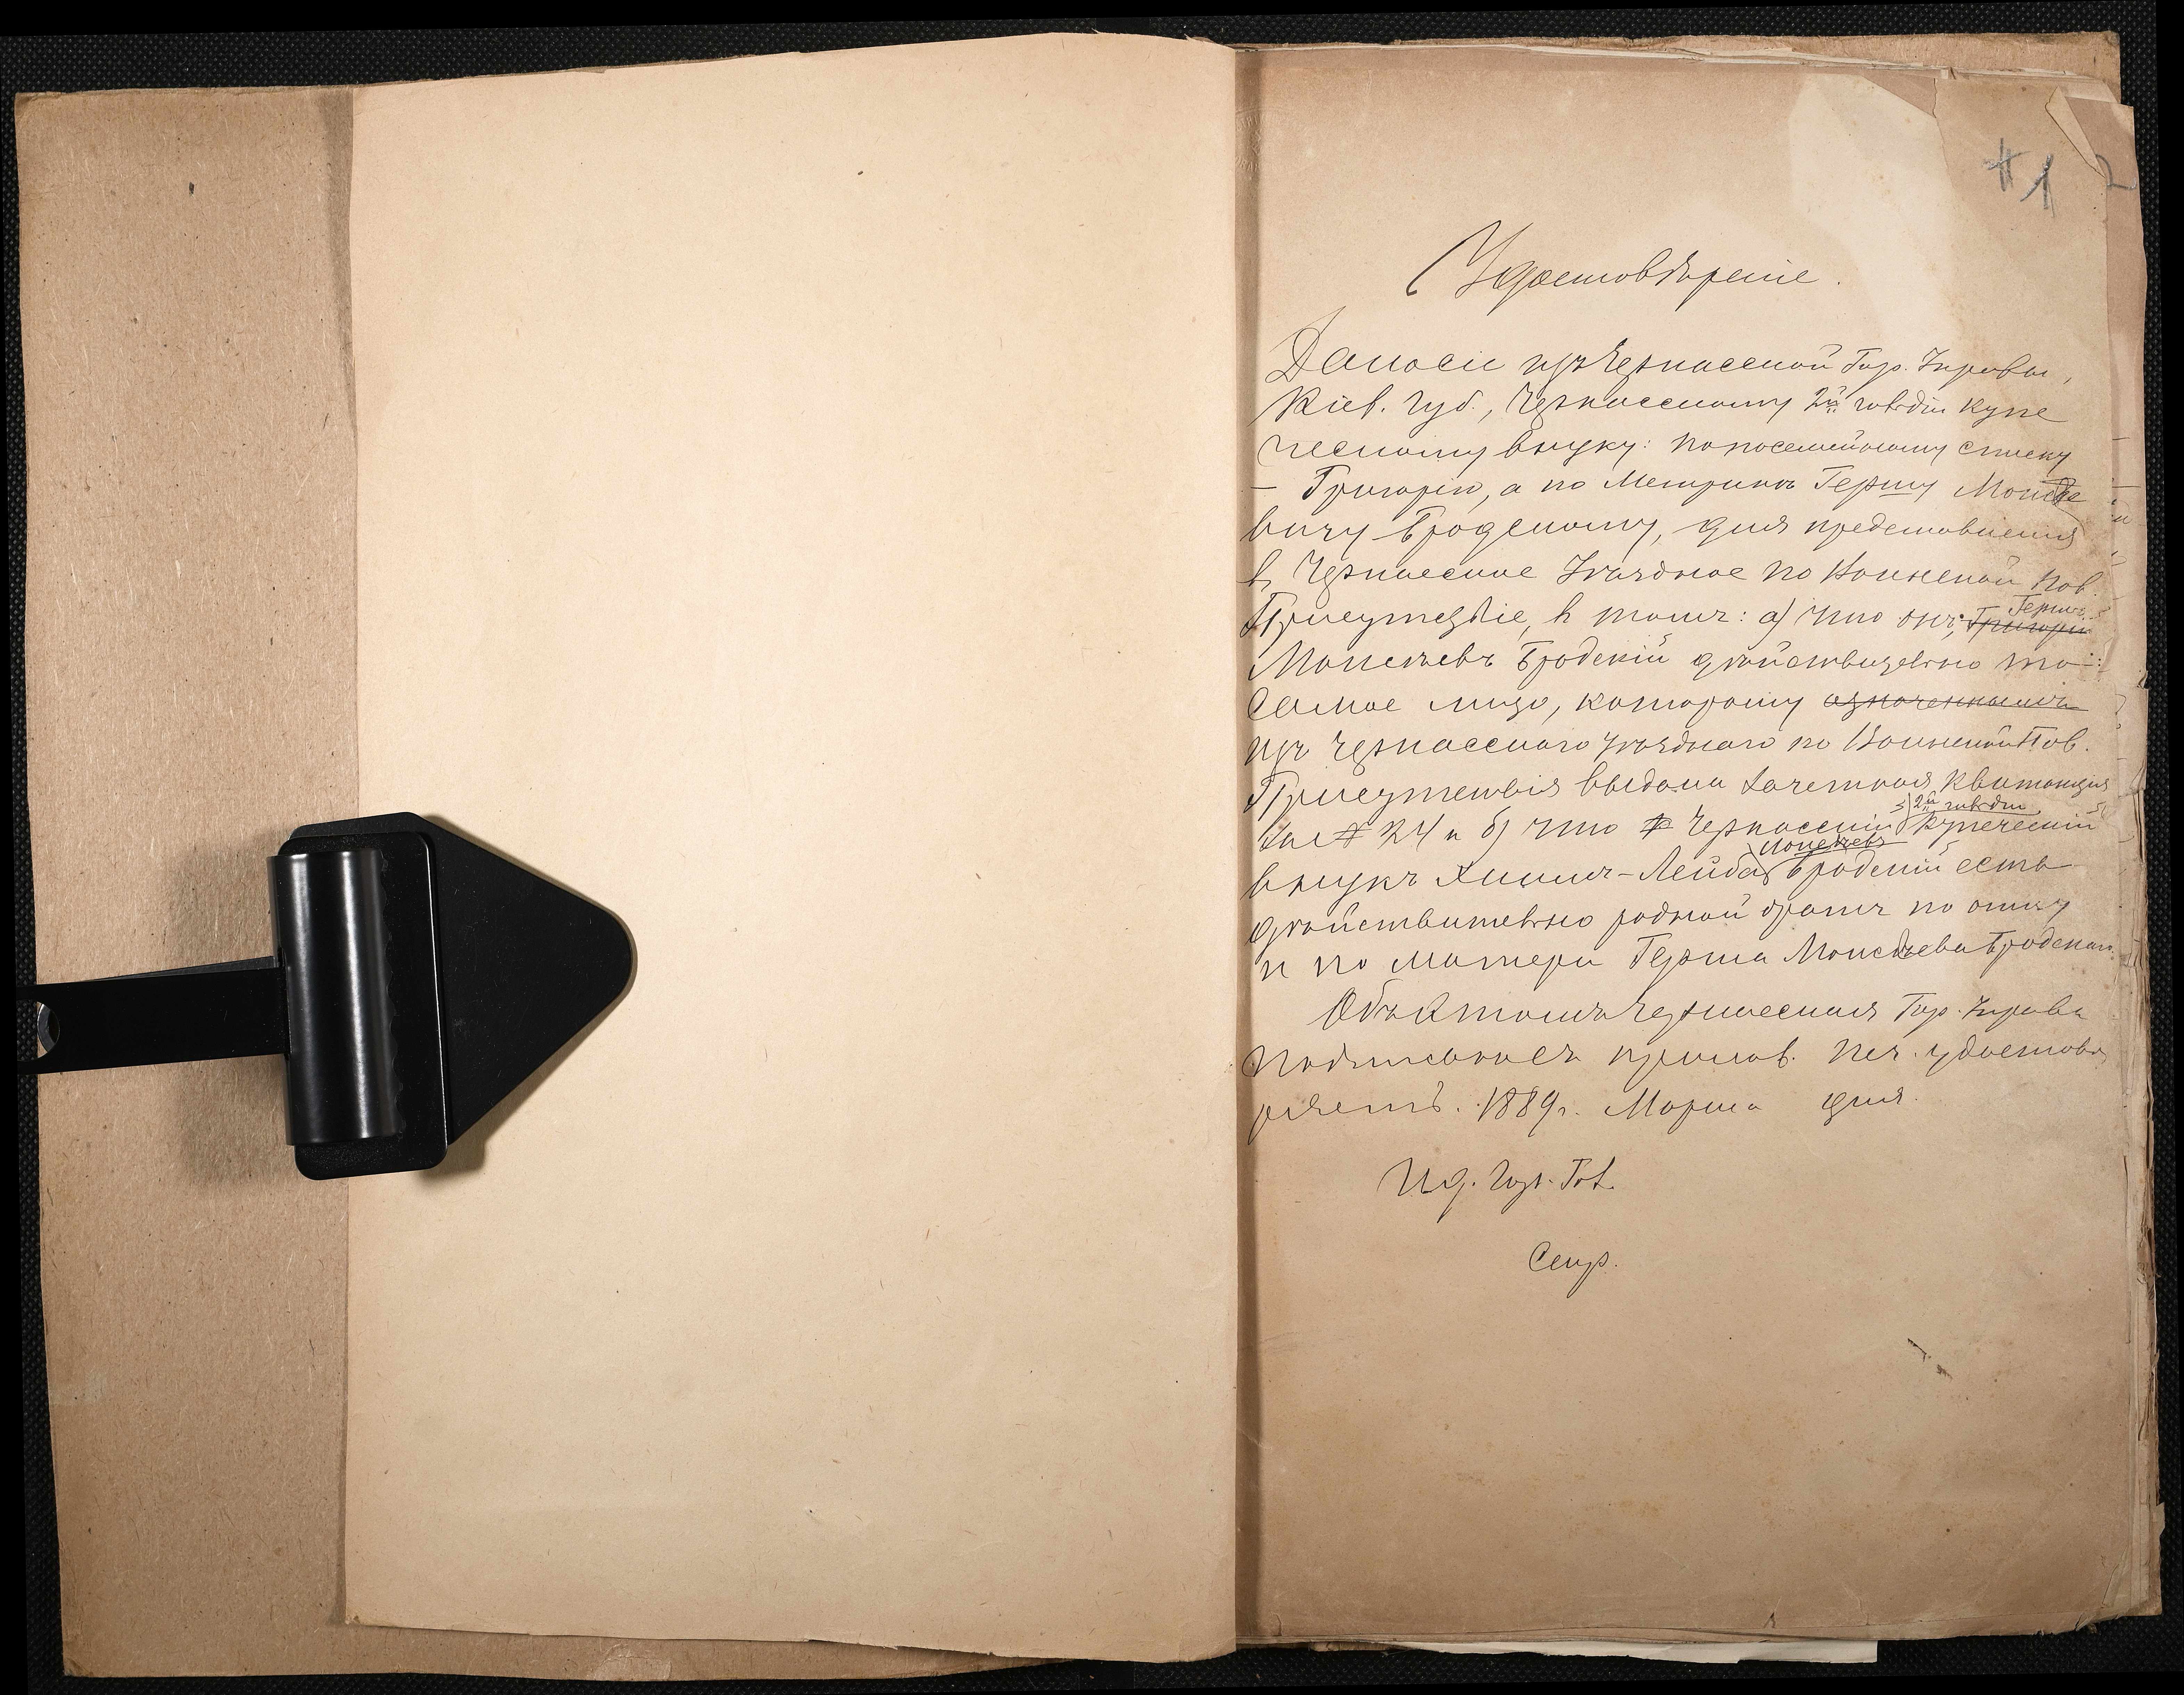 1 2
Удостовѣреніе.
Дано сіе изъ Черкасской Гор. Управы,
Кіев. губ., Черкасскому 2й гильдіи купе
ческому внуку: по посемейному списку
– Григорію, а по Метрикѣ Гершу Моисѣе
вичу Бродскому, для представленія
въ Черкасское Уѣздное по Воинской Пов.
Присутствіе, въ томъ: а) что онъ, Григорій Гершъ
Моисѣевъ Бродскій дѣйствительно то
самое лицо, которому означеннымъ
изъ Черкасскаго Уѣзднаго по Воинской Пов.
Присутствія выдана Зачетная квитанція
за № 24 и б) что Черкасскій 2й гильдіи купеческій
внукъ Хаимъ-Лейба Моисѣевъ Бродскій есть
дѣйствительно родной братъ по отцу
и по матери Герша Моисѣева Бродскаго.
Объ этомъ Черкасская Гор. Управа
подписомъ съ прилож. печ. удостовѣ
ряетъ. 1889 г. Марта дня.
И. д. Гор. Гол.
Секр.